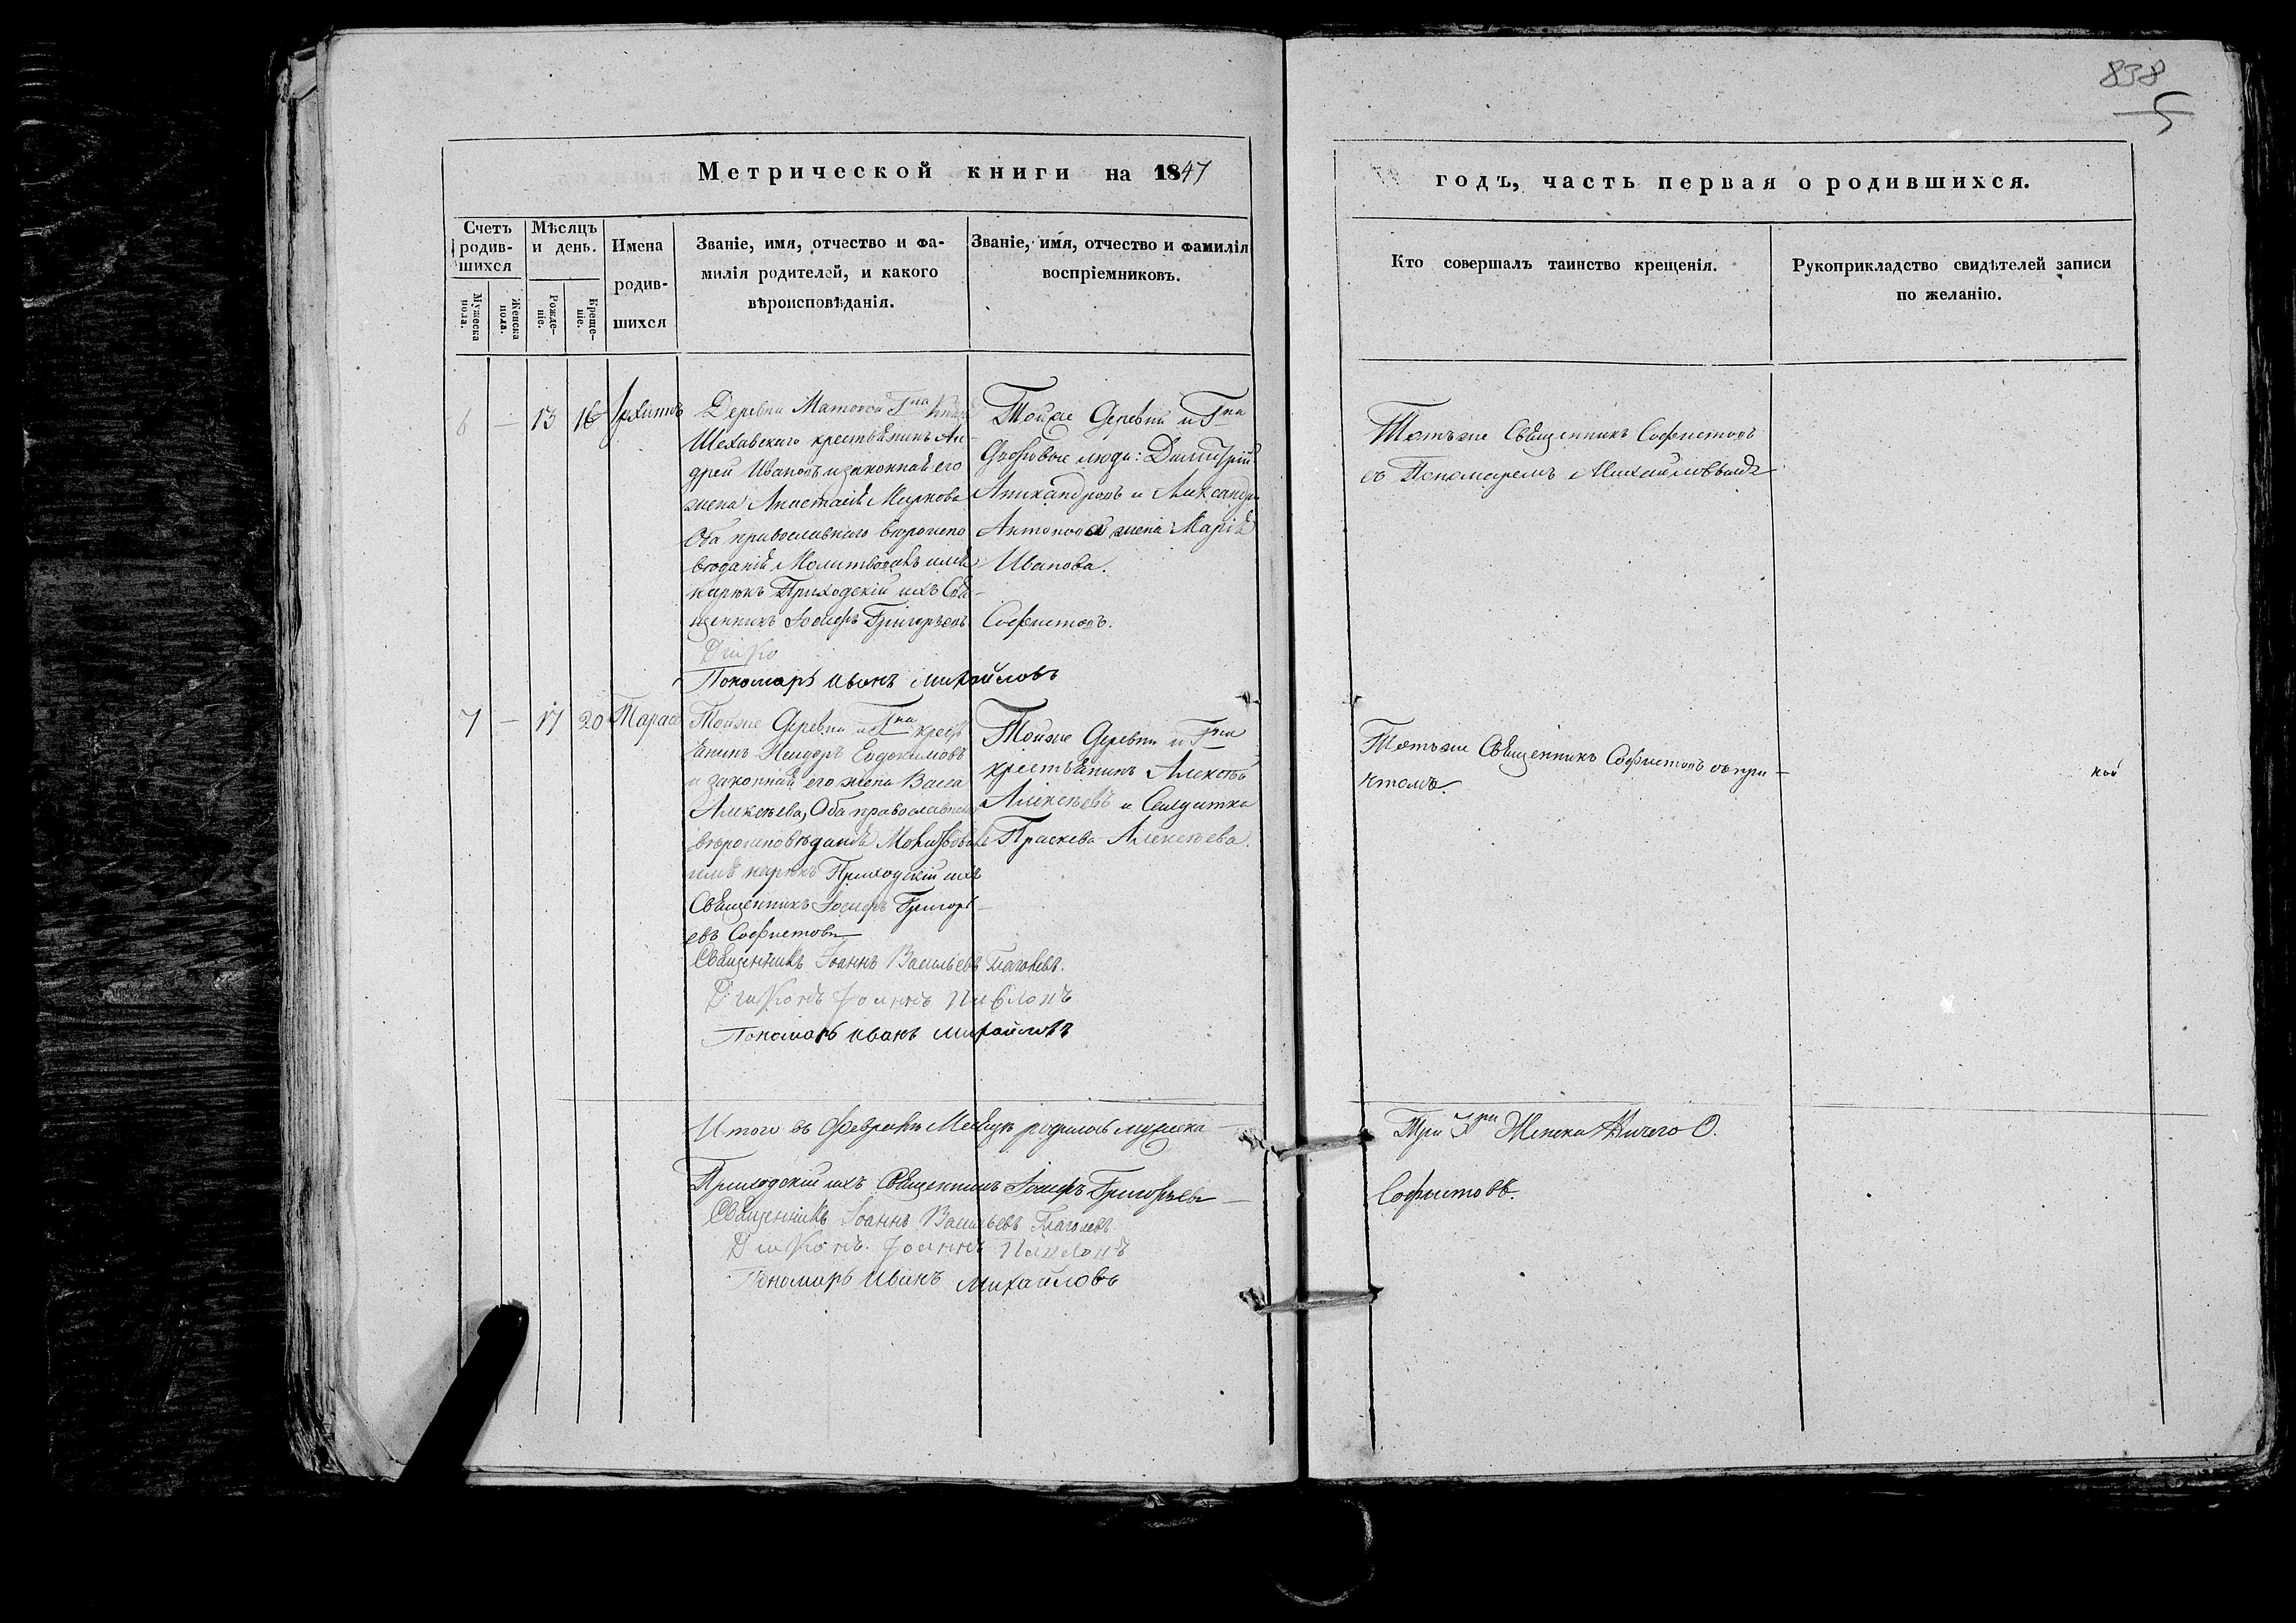 838
5
Метрической книги на 1847
годъ, часть первая о родившихся.
Счетъ родив-шихся
Мѣсяцъ и день.
Мужеска пола.
Женска пола.
Рожде-ніе.
Креще-ніе.
Имена родив-шихся
Званіе, имя, отчество и фа-
милія родителей, и какого
вѣроисповѣданія.
Званіе, имя, отчество и фамилія
воспріемниковъ.
Кто совершалъ таинство крещенія.
Рукоприкладство свидѣтелей записи
по желанію.
6 — 13 16
Деревни Гна Князя
Шехавскаго крестьянинъ Ан-
дрей Ивановъ и законная его
жена Анастасія Маркова
Оба православнаго вѣроиспо
вѣданія Молитвовалъ имя
нарекъ Приходскій ихъ Свя-
щенникъ Іосифъ Григорьевъ
Софистовъ.
Пономарь Иванъ Михайловъ
Тойже Деревни и Гна
Дворовые люди: Димитрій
Никандровъ и Александра
Антонова жена Марія
Иванова.
Тотъже Священникъ Софистовъ
съ Пономаремъ Михайловымъ
7 — 17 20 Тарасій
Тойже Деревни и Гна крест
янинъ Исидоръ Евдокимовъ
и законная его жена Васса
Алексѣева, Оба православнаго
вѣроисповѣданія Молитвовалъ
имя нарекъ Приходскій ихъ
Священникъ Іосифъ Григорь-
евъ Софистовъ
Священникъ Іоаннъ Васильевъ Глаголевъ.
Діаконъ Іоаннъ Павловъ
Пономарь Иванъ Михайловъ
Тойже Деревни и Гна
крестьянинъ Алексѣй
Алексѣевъ и Солдатка
Праскева Алексѣева.
Тотъже Священникъ Софистовъ съ при-
чтомъ.
кой
Итого въ Февралѣ Мѣсяцѣ родилось мужеска —
Три 3ри Женска Ничего 0.
Приходскій ихъ Священникъ Іосифъ Григорьевъ —
Софистовъ.
Священникъ Іоаннъ Васильевъ Глаголевъ
Діаконъ Іоаннъ Павловъ
Пономарь Иванъ Михайловъ